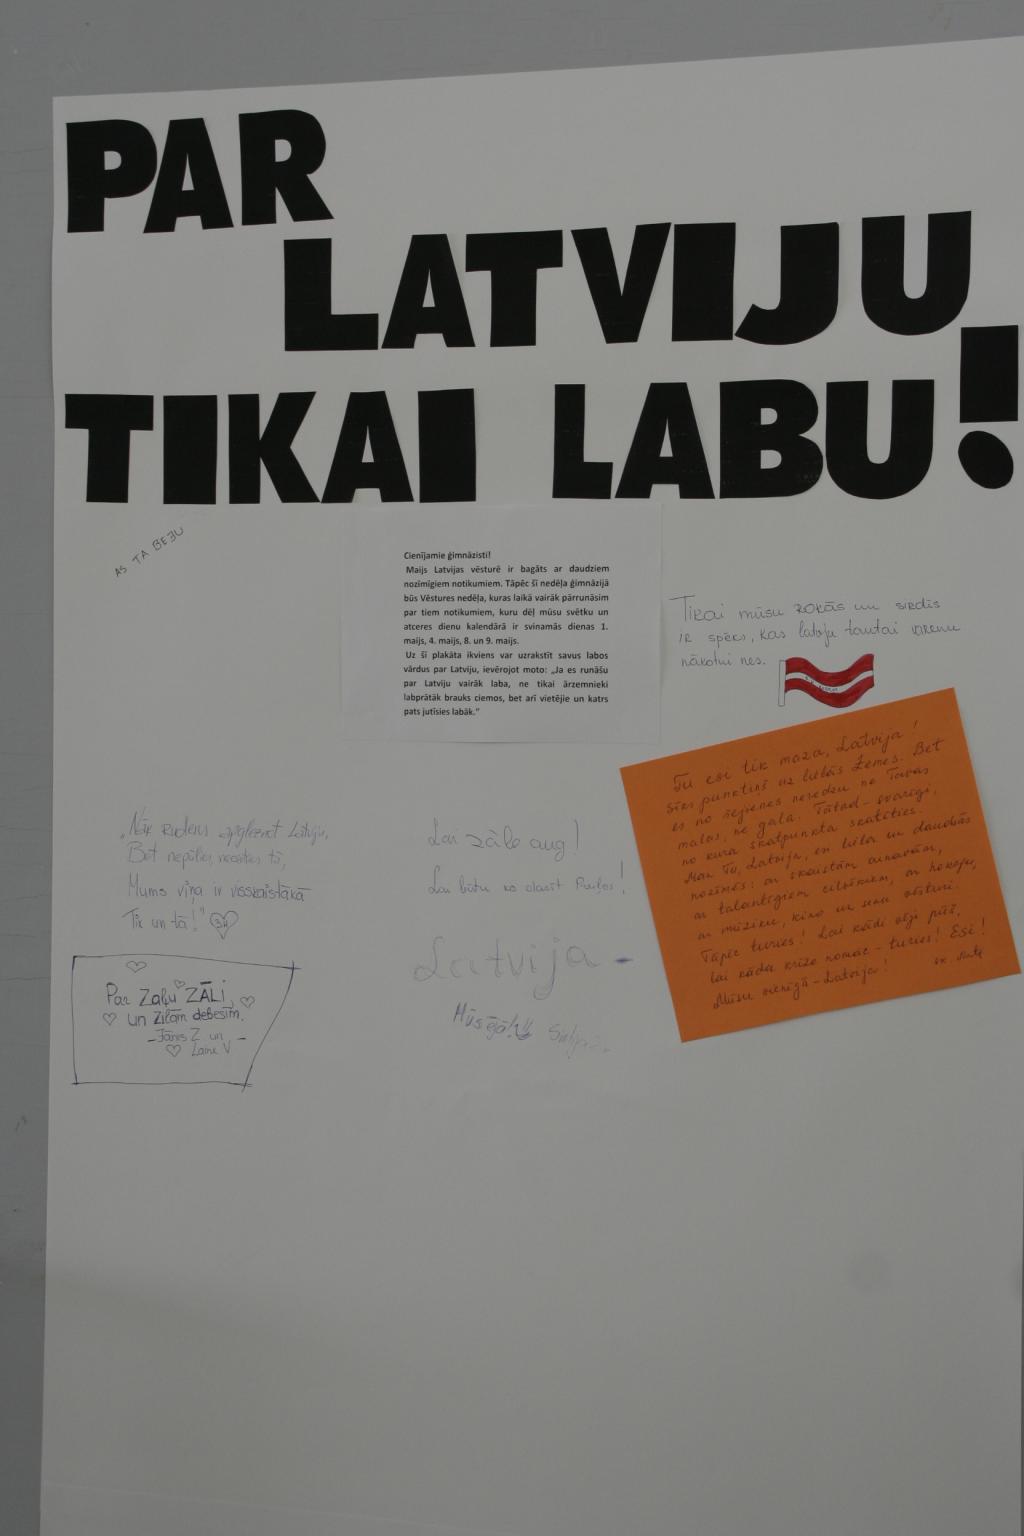 PAR
LATVIJU
TIKAI LABU!
AS TA BEŽU
Cienījamie ģimnāzisti!
Maijs Latvijas vēsturē ir bagāts ar daudziem
nozīmīgiem notikumiem. Tāpēc šī nedēļa ģimnāzijā
būs Vēstures nedēļa, kuras laikā vairāk pārrunāsim
par tiem notikumiem, kuru dēļ mūsu svētku un
atceres dienu kalendārā ir svinamās dienas 1.
maijs, 4. maijs, 8. un 9. maijs.
Uz šī plakāta ikviens var uzrakstīt savus labos
vārdus par Latviju, ievērojot moto: „Ja es runāšu
par Latviju vairāk laba, ne tikai ārzemnieki
labprātāk brauks ciemos, bet arī vietējie un katrs
pats jutīsies labāk."
Tikai mūsu rokās un sirdīs
ir spēks, kas latvju tautai varenu
nākotni nes.
Tu esi tik maza, Latvija!
Sīks punktiņš uz lielās Zemes. Bet
es no šejienes neredzu ne Tavas
malas, ne gala. Tātad - svarīgi,
no kura skatpunkta skatīties.
Man Tu, Latvija, esi liela un daudzās
nozīmēs: ar skaistām ainavām,
ar talantīgiem cilvēkiem, ar hokeju,
ar mūziku, kino un senu vēsturi.
Tāpēc turies! Lai kādi vēji pūš,
lai kāda krīze nomāc - turies! Esi!
Mūsu vienīgā - Latvija!
„Nāk rudens apgleznot Latviju,
Bet nepūlies, necenties tā,
Mums viņa ir visskaistākā
Tik un tā!"
Lai zāle aug!
Lai būtu ko olasīt
Latvija -
Mūsējā!
Par Zaļu ZĀLI,
un zilām debesīm.
- Jānis Z un -
Laine V